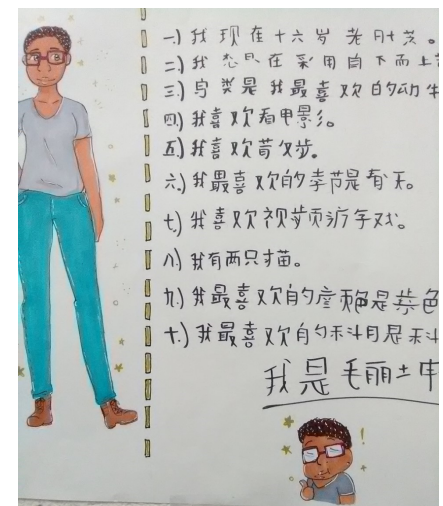 一.)我现在十六岁
二.)我想 在采用自下而上
三.)鸟类是我最喜欢的动
四.)我喜欢看电影。
五.)我喜欢
六.)我最喜欢的季节是春天。
七.)我喜欢视频游 戏。
八.)我有两只猫。
九.)我最喜欢的 是紫色
十.)我最喜欢的科目是科
我是毛丽